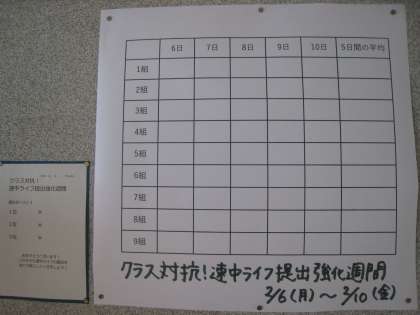 6日 7日 8日 9日 10日 5日間の平均
1組
2組
3組
4組
5組
6組
7組
8組
9組
クラス対抗!速中ライフ提出強化週間
2/6(月)〜2/10(金)
クラス対抗!
速中ライフ提出強化週間